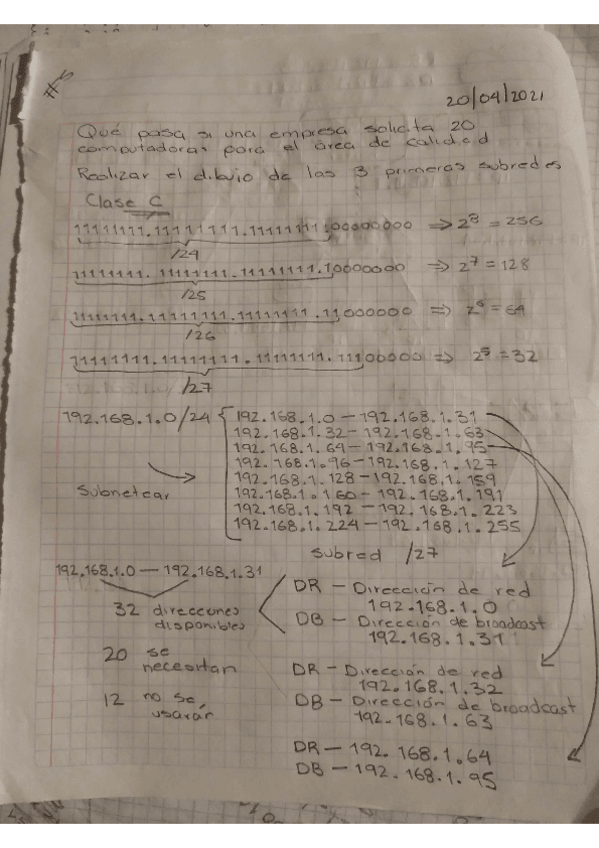 #5
20/04/2021
Qué pasa si una empresa solicita 20
computadoras para el área de calidad
Realizar el dibujo de las 3 primeras subredes
Clase C
11111111.11111111.11111111.00000000 => 2^8 = 256
/24
11111111.11111111.11111111.10000000 => 2^7 = 128
/25
11111111.11111111.11111111.11000000 => 2^6 = 64
/26
11111111.11111111.11111111.11100000 => 2^5 = 32
/27
192.168.1.0/24 { 192.168.1.0 — 192.168.1.31
192.168.1.32 — 192.168.1.63
192.168.1.64 — 192.168.1.95
192.168.1.96 — 192.168.1.127
192.168.1.128 — 192.168.1.159
192.168.1.160 — 192.168.1.191
192.168.1.192 — 192.168.1.223
192.168.1.224 — 192.168.1.255
Subnetear
Subred /27
192.168.1.0 — 192.168.1.31
32 direcciones
disponibles
20 se
necesitan
12 no se
usarán
DR — Dirección de red
192.168.1.0
DB — Dirección de broadcast
192.168.1.31
DR — Dirección de red
192.168.1.32
DB — Dirección de broadcast
192.168.1.63
DR — 192.168.1.64
DB — 192.168.1.95